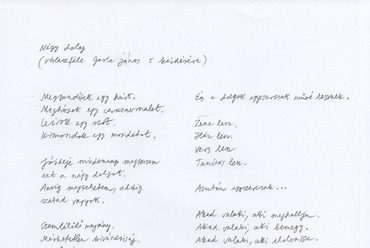 Négy dolog
(válaszféle Gaule János 5 kérdésére)
Megpendítek egy húrt.
Meghúzok egy ceruzavonalat.
Leírok egy szót.
Kimondok egy mondatot.
Jódsige mindennap megszerzem
ezt a négy dolgot.
Amíg megtehetem, addig
szabad vagyok.
Szemlélődő magány.
Mérhetetlen kíváncsiság.
És a dolgok egyszercsak művé lesznek.
Zene lesz.
Ház lesz.
Vers lesz.
Tanítás lesz.
Azután egyszercsak...
Akad valaki, aki meghallja.
Akad valaki, aki bemegy.
Akad valaki, aki elolvassa.